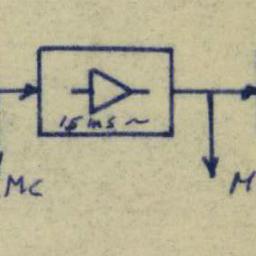 15 ms ~
MC
M